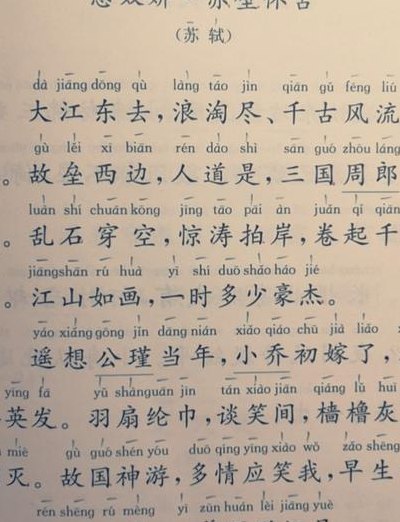 (苏 轼)
dà jiāng dōng qù làng táo jìn qiān gǔ fēng liú
大江东去,浪淘尽、千古风流
gù lěi xī biān rén dào shì sān guó zhōu láng
。故垒西边,人道是,三国周郎
luàn shí chuān kōng jīng tāo pāi àn juǎn qǐ qiān
。乱石穿空,惊涛拍岸,卷起千
jiāng shān rú huà yī shí duō shǎo háo jié
。江山如画,一时多少豪杰。
yáo xiǎng gōng jǐn dāng nián xiǎo qiáo chū jià liǎo
遥想公瑾当年,小乔初嫁了,
yīng fā yǔ shàn guān jīn tán xiào jiān qiáng lǔ huī
英发。羽扇纶巾,谈笑间,樯橹灰
miè gù guó shén yóu duō qíng yīng xiào wǒ zǎo shēng
灭。故国神游,多情应笑我,早生
rén shēng rú mèng yì zūn huán lèi jiāng yuè